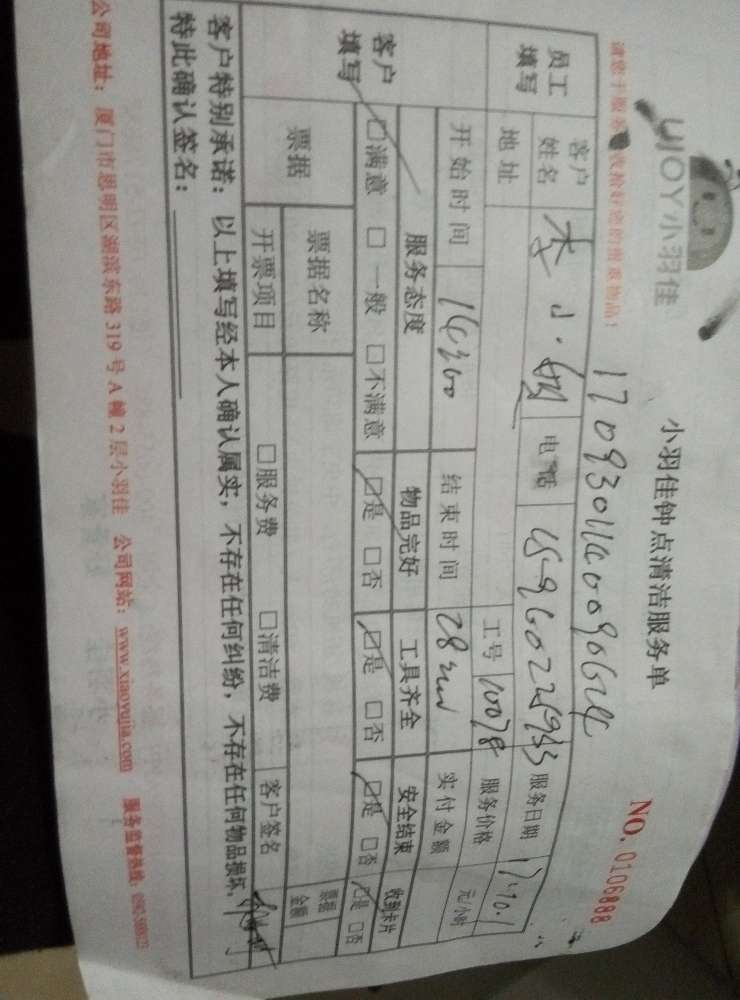 UJOY小羽佳
小羽佳钟点清洁服务单
NO. 0106888
请您于服务 收拾好您的贵重物品!
员工填写 客户姓名 李小 电话 服务日期 17.10.1
地址 工号 10078 服务价格 元/小时
开始时间 结束时间 实付金额
客户填写 服务态度 物品完好 工具齐全 安全结束 收到卡片
□满意 □一般 □不满意 □是 □否 □是 □否 □是 □否 □是 □否
票据 票据名称 票据金额
开票项目 □服务费 □清洁费 客户签名
客户特别承诺:以上填写经本人确认属实,不存在任何纠纷,不存在任何物品损坏,
特此确认签名:
公司地址:厦门市思明区湖滨东路319号A幢2层小羽佳 公司网站:www.xiaoyujia.com 服务监督热线: